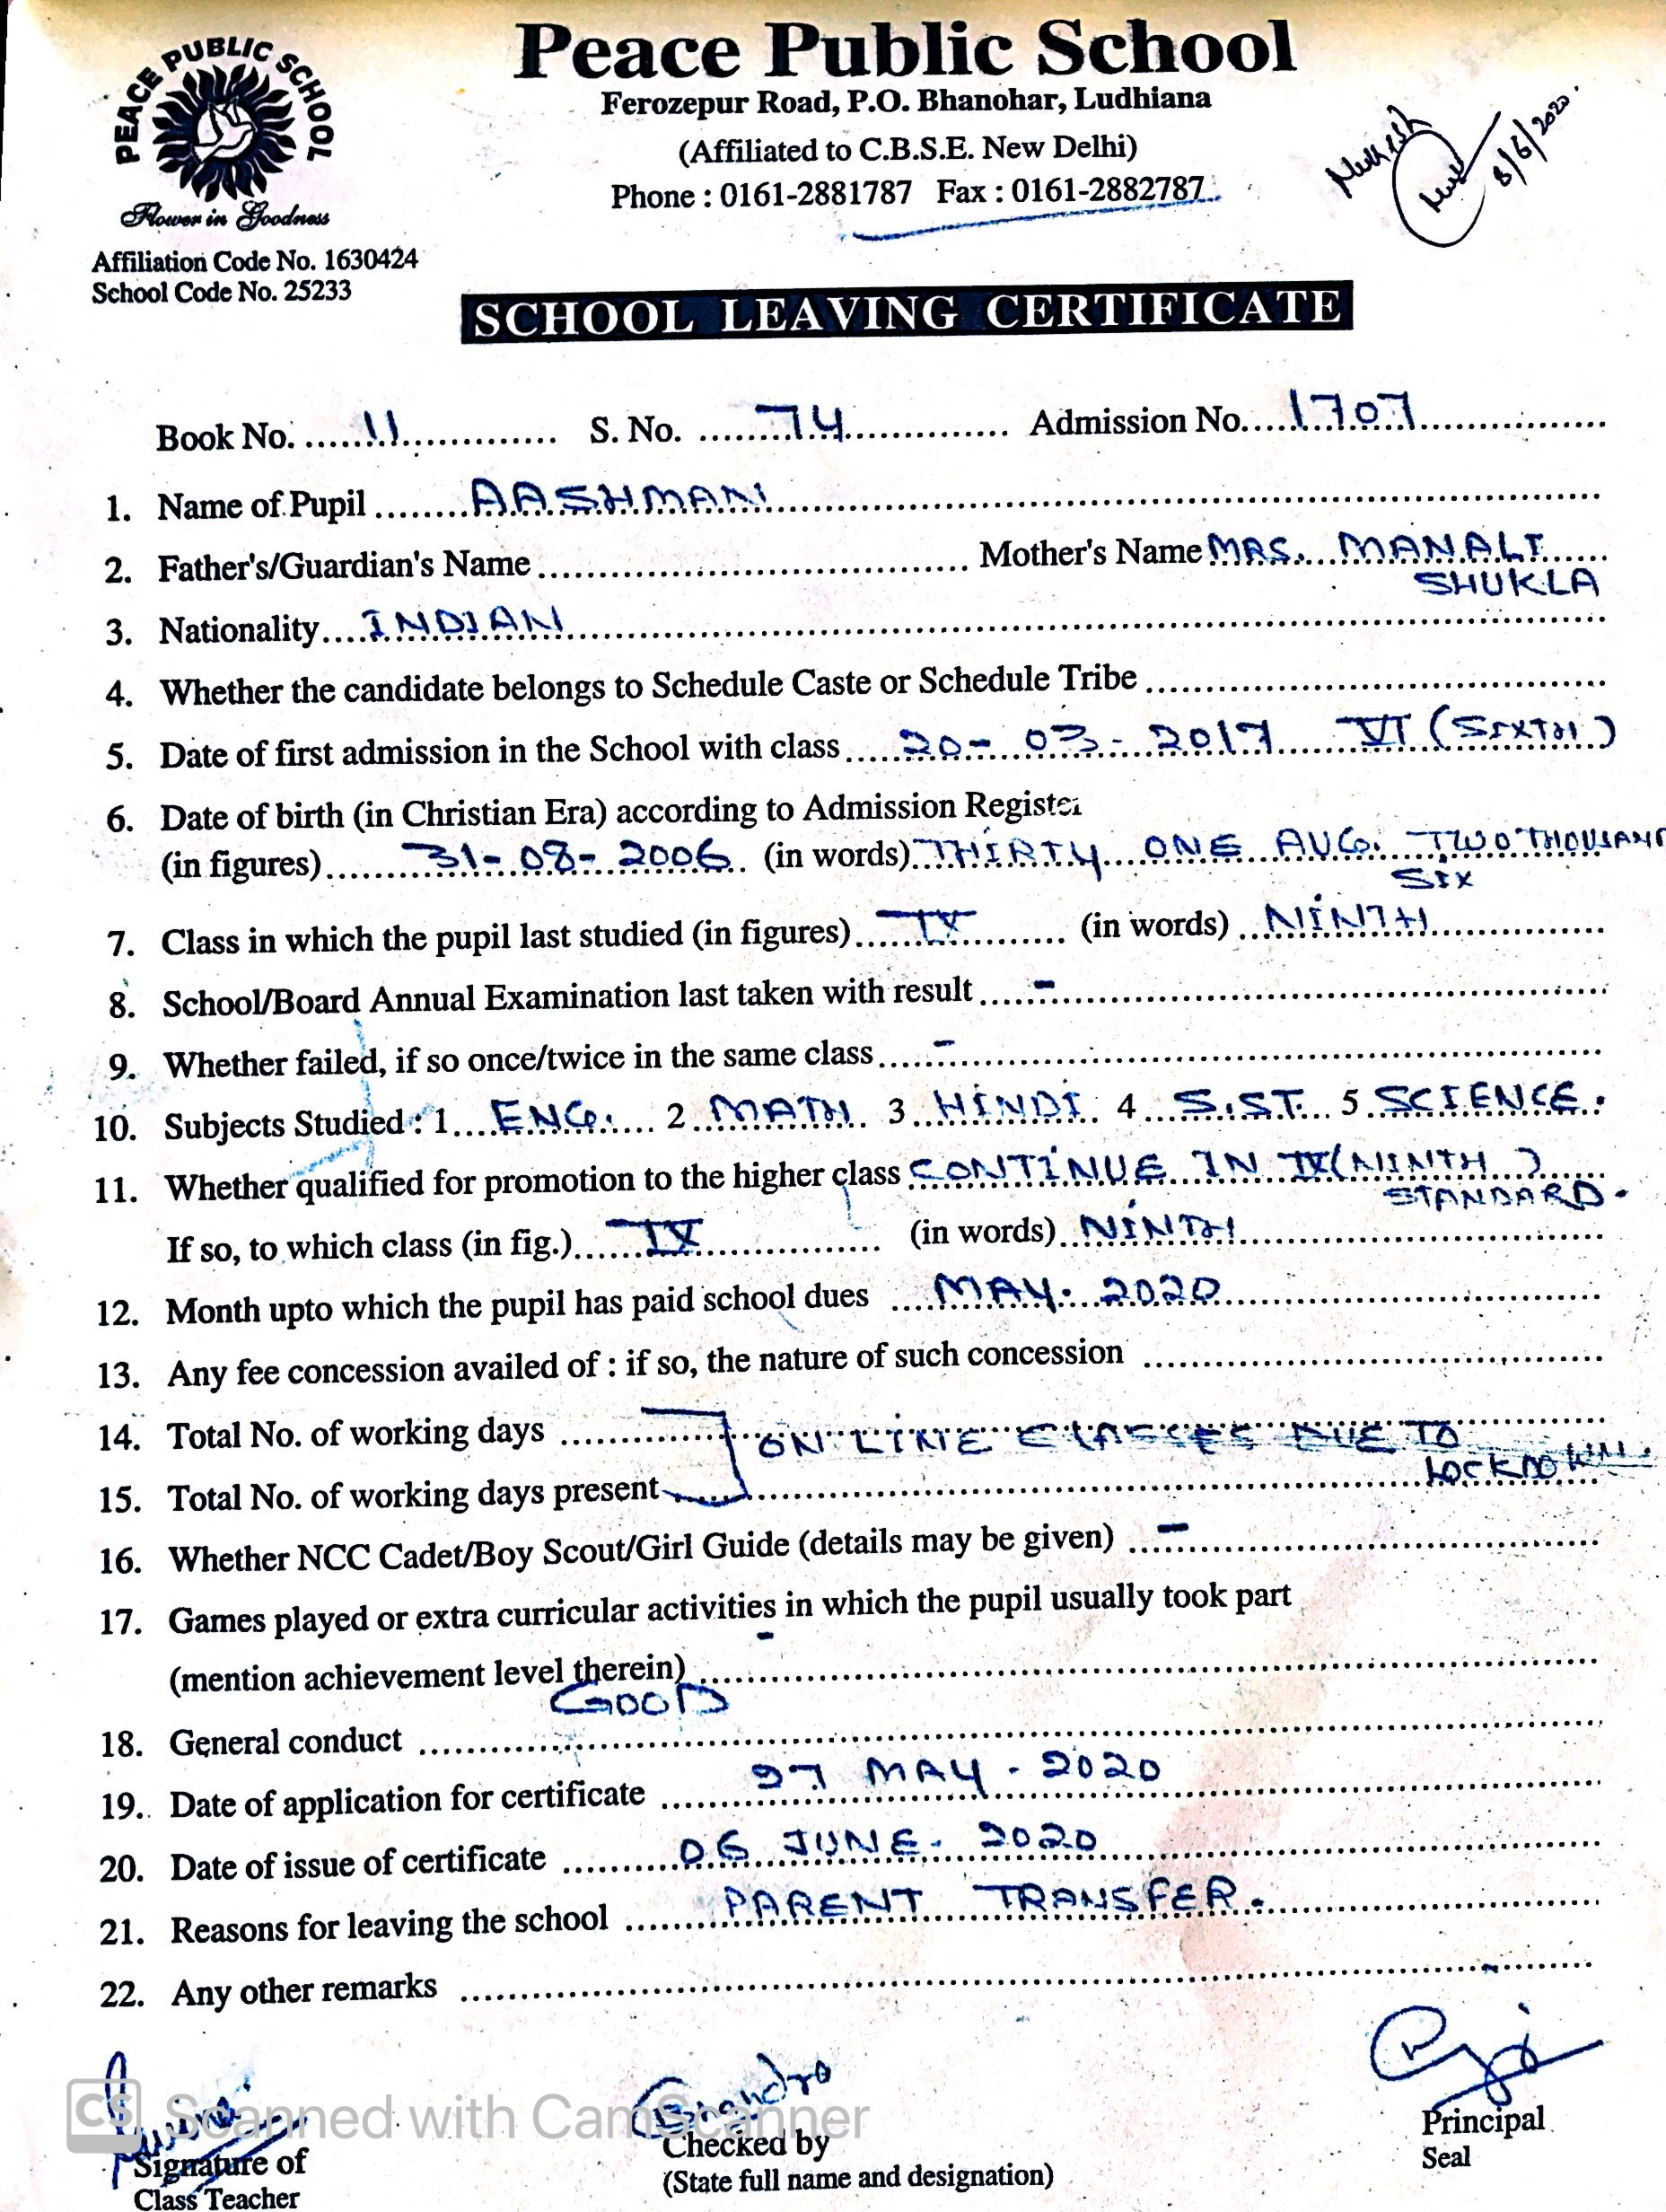 PEACE PUBLIC SCHOOL
Flower in Goodness
Affiliation Code No. 1630424
School Code No. 25233
Peace Public School
Ferozepur Road, P.O. Bhanohar, Ludhiana
(Affiliated to C.B.S.E. New Delhi)
Phone : 0161-2881787 Fax : 0161-2882787
8/6/2020
SCHOOL LEAVING CERTIFICATE
Book No. 11 S. No. 74 Admission No. 1707
1. Name of Pupil AASHMAN
2. Father's/Guardian's Name Mother's Name MRS. MANALI
SHUKLA
3. Nationality INDIAN
4. Whether the candidate belongs to Schedule Caste or Schedule Tribe
5. Date of first admission in the School with class 20-03-2017 VI (SIXTH)
6. Date of birth (in Christian Era) according to Admission Register
(in figures) 31-08-2006 (in words) THIRTY ONE AUG. TWO THOUSAND
SIX
7. Class in which the pupil last studied (in figures) IX (in words) NINTH
8. School/Board Annual Examination last taken with result -
9. Whether failed, if so once/twice in the same class -
10. Subjects Studied : 1 ENG. 2 MATH 3 HINDI 4 S.ST. 5 SCIENCE.
11. Whether qualified for promotion to the higher class CONTINUE IN IX (NINTH)
STANDARD.
If so, to which class (in fig.) IX (in words) NINTH
12. Month upto which the pupil has paid school dues MAY. 2020
13. Any fee concession availed of : if so, the nature of such concession
14. Total No. of working days ON LINE CLASSES DUE TO
LOCKDOWN.
15. Total No. of working days present
16. Whether NCC Cadet/Boy Scout/Girl Guide (details may be given) -
17. Games played or extra curricular activities in which the pupil usually took part
-
(mention achievement level therein)
18. General conduct GOOD
19. Date of application for certificate 27 MAY - 2020
20. Date of issue of certificate 06 JUNE - 2020
21. Reasons for leaving the school PARENT TRANSFER.
22. Any other remarks -
CS Scanned with CamScanner
Signature of
Class Teacher
Checked by
(State full name and designation)
Principal
Seal